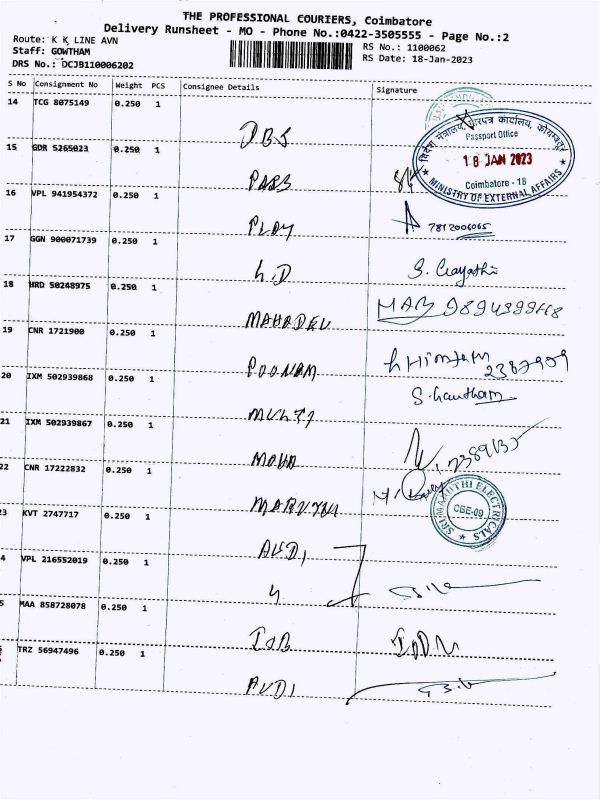 THE PROFESSIONAL COURIERS, Coimbatore
Delivery Runsheet - MO - Phone No.:0422-3505555 - Page No.:2
Route: K K LINE AVN
Staff: GOWTHAM
DRS No.: DCJB110006202
RS No.: 1100062
RS Date: 18-Jan-2023
S No Consignment No Weight PCS Consignee Details Signature
14 TCG 8075149 0.250 1
DBS
विदेश मंत्रालय, पारपत्र कार्यालय, कोयम्बतूर
Passport Office
18 JAN 2023
Coimbatore - 18
MINISTRY OF EXTERNAL AFFAIRS
15 GDR 5265023 0.250 1
PASS
16 VPL 941954372 0.250 1
PLAY 7812006065
17 GGN 900071739 0.250 1
L.D S. Gayathi
18 HRD 50248975 0.250 1
MAHADEV
19 CNR 1721900 0.250 1
POONAM
20 IXM 502939868 0.250 1
S. Gautham
21 IXM 502939867 0.250 1
22 CNR 17222832 0.250 1
SRI MARUTHI ELECTRICALS
CBE-09
3 KVT 2747717 0.250 1
AUDI
4 VPL 216552019 0.250 1
5 MAA 858728078 0.250 1
IOB
TRZ 56947496 0.250 1
AUDI